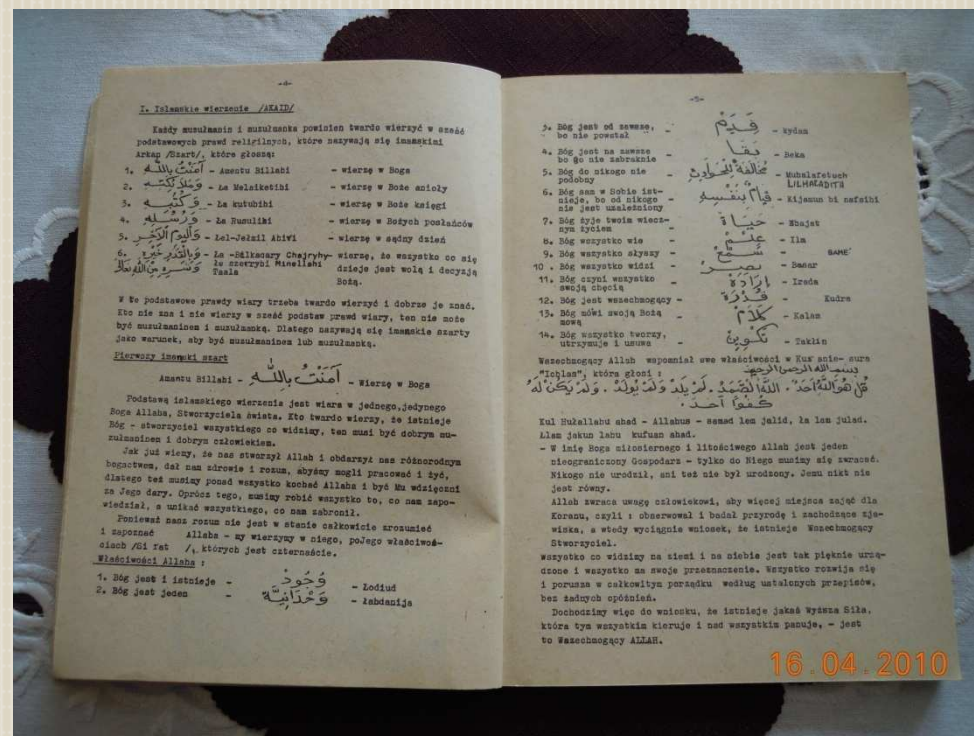 -4-
I. Islamskie wierzenie /AKAID/
Każdy muzułmanin i muzułmanka powinien twardo wierzyć w sześć
podstawowych prawd religilnych, które nazywają się imamskimi
Arkan /Szart/, które głoszą:
1. آمَنْتُ بِاللهِ - Amentu Billahi - wierzę w Boga
2. وَمَلٰئِكَتِهِ - Ła Melaiketihi - wierzę w Boże anioły
3. وَكُتُبِهِ - Ła kutubihi - wierzę w Boże księgi
4. وَرُسُلِهِ - Ła Rusulihi - wierzę w Bożych posłańców
5. وَالْيَوْمِ الْآخِرِ - Łel-Jełmil Ahiri - wierzę w sądny dzień
6. وَبِالْقَدَرِ خَيْرِهِ - Ła -Bilkadary Chajryhy- wierzę, że wszystko co się
وَشَرِّهِ مِنَ اللهِ تَعَالَى ła szerryhi Minellahi dzieje jest wolą i decyzją
Taala Bożą.
W te podstawowe prawdy wiary trzeba twardo wierzyć i dobrze je znać.
Kto nie zna i nie wierzy w sześć podstaw prawd wiary, ten nie może
być muzułmaninem i muzułmanką. Dlatego nazywają się imamskie szarty
jako warunek, aby być muzułmaninem lub muzułmanką.
Pierwszy imamski szart
Amentu Billahi - آمَنْتُ بِاللهِ - Wierzę w Boga
Podstawą islamskiego wierzenia jest wiara w jednego,jedynego
Boga Allaha, Stworzyciela świata. Kto twardo wierzy, że istnieje
Bóg - stworzyciel wszystkiego co widzimy, ten musi być dobrym mu-
zułmaninem i dobrym człowiekiem.
Jak już wiemy, że nas stworzył Allah i obdarzył nas różnorodnym
bogactwem, dał nam zdrowie i rozum, abyśmy mogli pracować i żyć,
dlatego też musimy ponad wszystko kochać Allaha i być Mu wdzięczni
za Jego dary. Oprócz tego, musimy robić wszystko to, co nam zapo-
wiedział, a unikać wszystkiego, co nam zabronił.
Ponieważ nasz rozum nie jest w stanie całkowicie zrozumieć
i zapoznać Allaha - my wierzymy w niego, poJego właściwoś-
ciach /Si fat /, których jest czternaście.
Właściwości Allaha :
1. Bóg jest i istnieje - وُجُودْ - Łodiud
2. Bóg jest jeden - وَحْدَانِيَّة - Łahdanija
-5-
3. Bóg jest od zawsze, - قِدَمْ - kydam
bo nie powstał
4. Bóg jest na zawsze - بَقَا - Beka
bo go nie zabraknie
5. Bóg do nikogo nie - مُخَالَفَةٌ لِلْحَوَادِثِ - Muhalafetuch
podobny LILHAŁADITA
6. Bóg sam w Sobie ist- - قِيَامٌ بِنَفْسِهِ - Kijamun bi nafsihi
nieje, bo od nikogo
nie jest uzależniony
7. Bóg żyje twoim wiecz- - حَيَاة - Nhajat
nym życiem
8. Bóg wszystko wie - عِلْمْ - Ilm
9. Bóg wszystko słyszy - سَمْعْ - SAME'
10 . Bóg wszystko widzi - بَصَرْ - Basar
11. Bóg czyni wszystko - إِرَادَة - Irada
swoją chęcią
12. Bóg jest wszechmogący - قُدْرَة - Kudra
13. Bóg mówi swoją Bożą - كَلَامْ - Kalam
mową
14. Bóg wszystko tworzy, - تَكْوِينْ - Taklin
utrzymuje i usuwa
Wszechmogący Allah wspomniał swe właściwości w Kur'anie- sura
"Ichlas", która głosi : بسم الله الرحمن الرحيم
قُلْ هُوَ اللهُ أَحَدْ . اللهُ الصَّمَدْ . لَمْ يَلِدْ وَلَمْ يُولَدْ . وَلَمْ يَكُنْ لَهُ
كُفُوًا أَحَدْ .
Kul Hułallahu ahad - Allahus - samad lem jalid, ła lam julad.
Łlam jakun lahu kufuan ahad.
- W imię Boga miłosiernego i litościwego Allah jest jeden
nieograniczony Gospodarz - tylko do Niego musimy się zwracać.
Nikogo nie urodził, ani też nie był urodzony. Jemu nikt nie
jest równy.
Allah zwraca uwagę człowiekowi, aby więcej miejsca zajął dla
Koranu, czyli : obserwował i badał przyrodę i zachodzące zja-
wiska, a wtedy wyciągnie wniosek, że istnieje Wszechmogący
Stworzyciel.
wszystko co widzimy na ziemi i na niebie jest tak pięknie urzą-
dzone i wszystko ma swoje przeznaczenie. Wszystko rozwija się
i porusza w całkowitym porządku według ustalonych przepisów,
bez żadnych opóźnień.
Dochodzimy więc do wniosku, że istnieje jakaś Wyższa Siła,
która tym wszystkim kieruje i nad wszystkim panuje, - jest
to Wszechmogący ALLAH.
16.04.2010